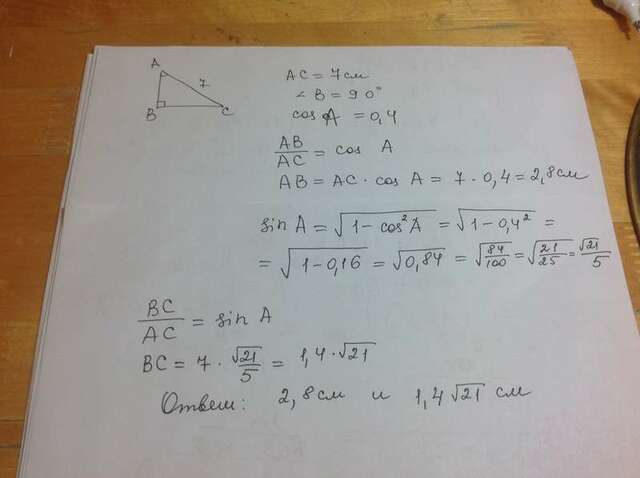 A
7
B
C
AC = 7 см
∠B = 90°
cos A = 0,4
AB/AC = cos A
AB = AC · cos A = 7 · 0,4 = 2,8 см
sin A = √(1 - cos²A) = √(1 - 0,4²) =
= √(1 - 0,16) = √0,84 = √(84/100) = √(21/25) = √21/5
BC/AC = sin A
BC = 7 · √21/5 = 1,4 · √21
Ответ: 2,8 см и 1,4 √21 см